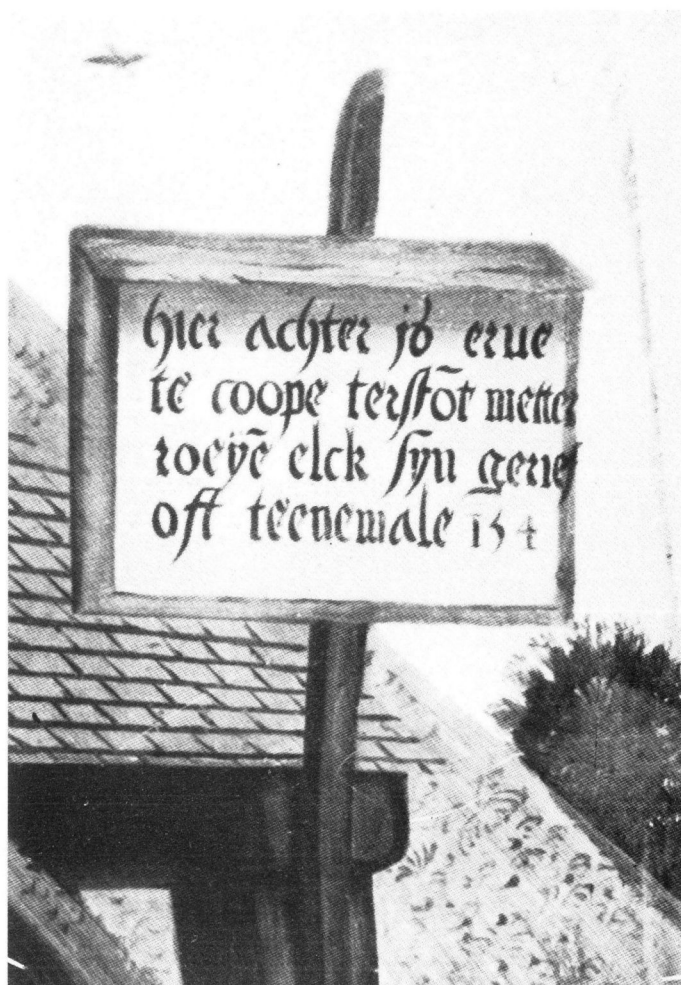 hier achter js erue
te coope terstōt metter
roeyē elck syn gerief
oft teenemale 154